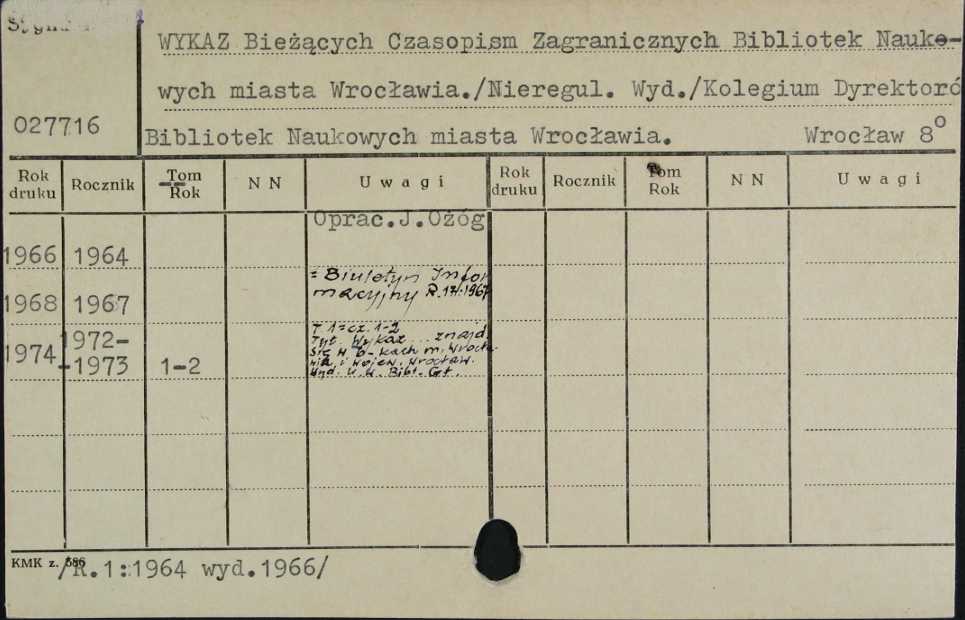 WYKAZ Bieżących Czasopism Zagranicznych Bibliotek Nauko-
wych miasta Wrocławia./Nieregul. Wyd./Kolegium Dyrektoró
027716
Bibliotek Naukowych miasta Wrocławia. Wrocław 8°
Rok druku Rocznik Tom Rok N N Uwagi Rok druku Rocznik Tom Rok N N Uwagi
Oprac.J.Ożóg
1966 1964
= Biuletyn Infor
macyjny R.
1968 1967
T 1=cz. 1-2
Tyt. Wykaz... znajd.
się w b-kach m. Wrocła-
wia i wojew. Wrocław.
Wyd. U.W. Bibl. Gł.
1974 1972-
-1973 1-2
KMK z. 586
/R.1:1964 wyd.1966/